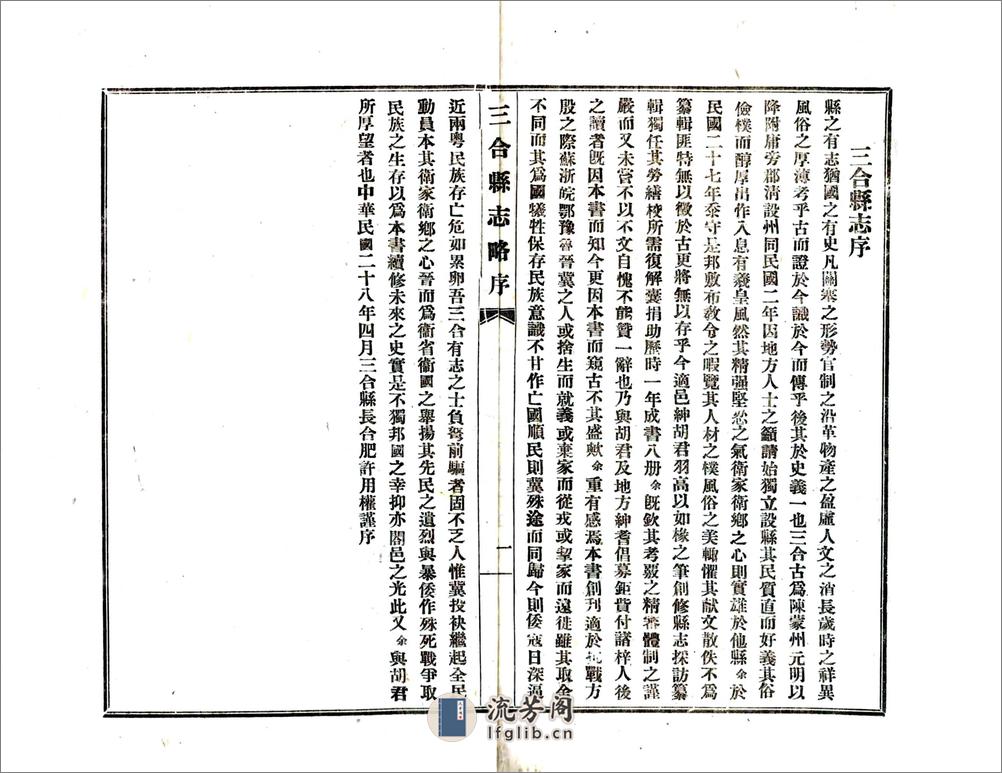 三合縣志序
縣之有志猶國之有史凡關塞之形勢官制之沿革物產之盈虛人文之消長歲時之祥異
風俗之厚薄考乎古而證於今識於今而傳乎後其於史義一也三合古爲陳蒙州元明以
降附庸旁郡淸設州同民國二年因地方人士之籲請始獨立設縣其民質直而好義其俗
儉樸而醇厚出作入息有羲皇風然其精强堅忍之氣衛家衛鄉之心則實雄於他縣余於
民國二十七年忝守是邦敷布敎令之暇覽其人材之樸風俗之美輒懼其献文散佚不爲
纂輯匪特無以徵於古更將無以存乎今適邑紳胡君羽高以如椽之筆創修縣志採訪纂
輯獨任其勞繕校所需復解囊捐助歷時一年成書八册余旣欽其考覈之精審體制之謹
嚴而又未嘗不以不文自愧不能贊一辭也乃與胡君及地方紳耆倡募鉅貲付諸梓人後
之讀者旣因本書而知今更因本書而窺古不其盛歟余重有感焉本書創刊適於抗戰方
殷之際蘇浙皖鄂豫魯晉冀之人或捨生而就義或棄家而從戎或挈家而遠徙雖其取舍
不同而其爲國犧牲保存民族意識不甘作亡國順民則冀殊途而同歸今則倭寇日深逼
三合縣志略序
一
近兩粵民族存亡危如累卵吾三合有志之士負弩前驅者固不乏人惟冀投袂繼起全民
動員本其衛家衛鄉之心晉而爲衞省衞國之舉揚其先民之遺烈與暴倭作殊死戰爭取
民族之生存以爲本書續修未來之史實是不獨邦國之幸抑亦闔邑之光此又余與胡君
所厚望者也中華民國二十八年四月三合縣長合肥許用權謹序
流芳阁
lfglib.cn